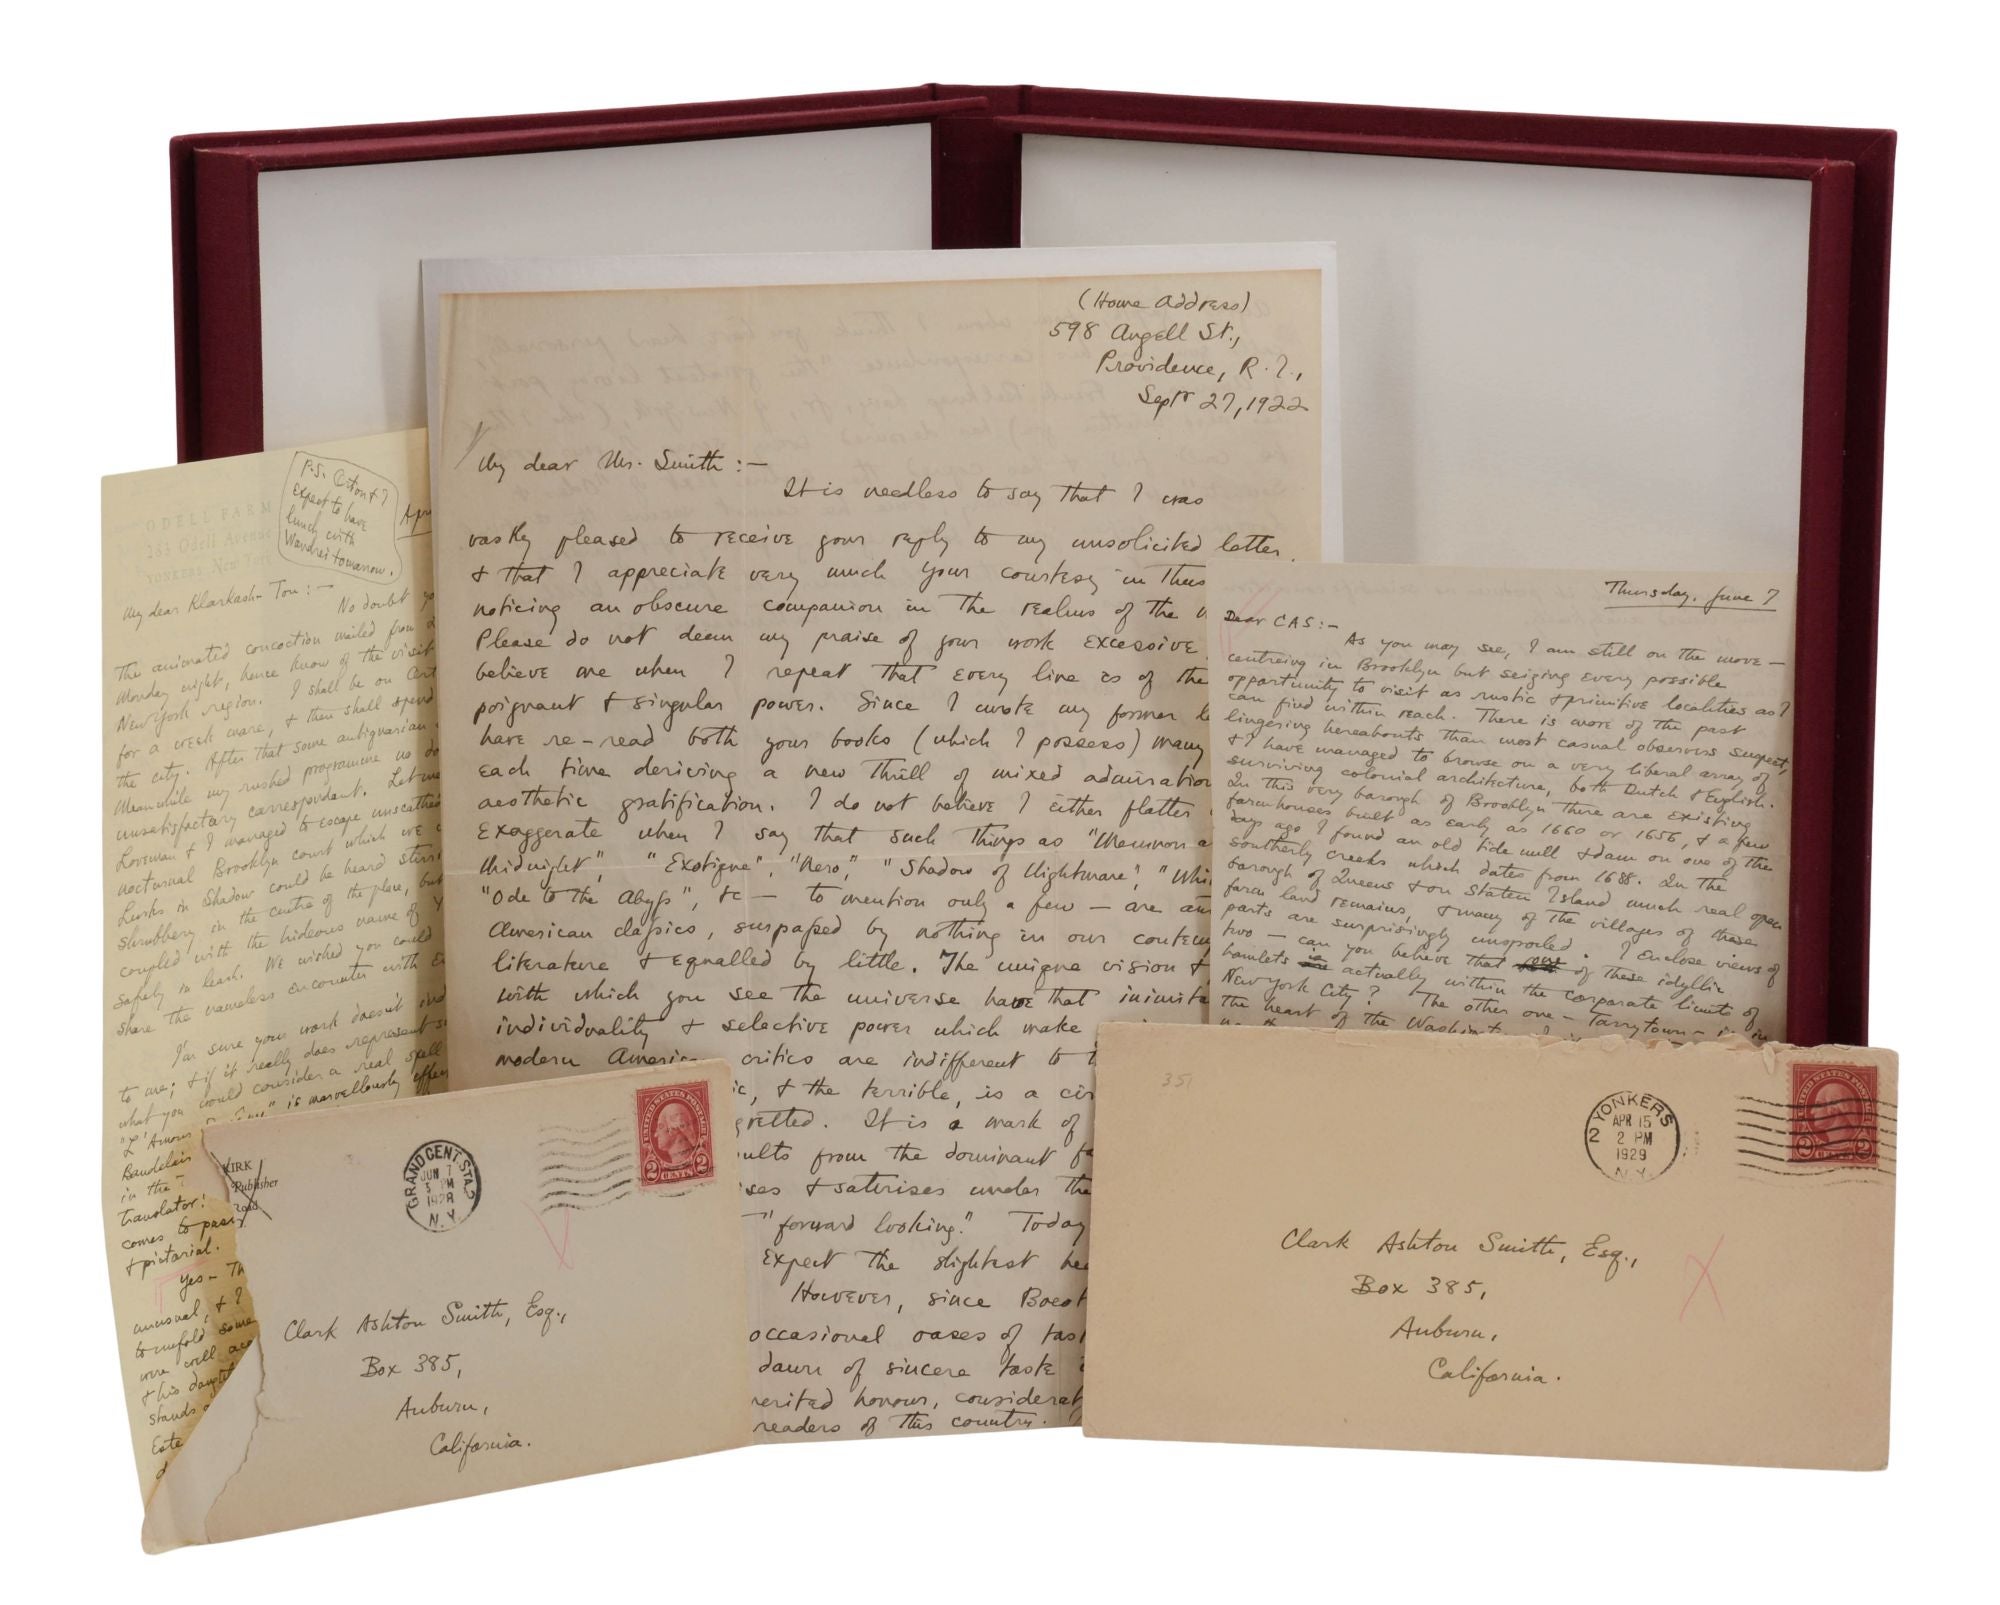 ODELL FARM
263 Odell Avenue
YONKERS, NEW YORK
P.S.
Expect to have
lunch with
Wandrei tomorrow.
My dear Klarkash-Ton:—
No doubt
The animated concoction mailed from
Monday night, hence know of the visit
New York region. I shall be on
for a week more, & then shall spend
the city. After that some antiquarian
Meanwhile my rushed programme no
unsatisfactory correspondent. Let me
Loveman & I managed to escape unscathed
nocturnal Brooklyn court which we
Lurks in Shadow could be heard
shrubbery in the centre of the place, but
coupled with the hideous name of
safely in leash. We wished you could
share the nameless encounter with
I'm sure your work doesn't
to me; & if it really does represent
what you would consider a real spell
" is marvellously
in the
translator!
comes to
& pictorial.
Yes—
unusual, & I
to unfold some
were well
& his
stands
(Home Address)
598 Angell St.,
Providence, R.I.,
Septr 27, 1922
My dear Mr. Smith:—
It is needless to say that I was
vastly pleased to receive your reply to my unsolicited letter,
& that I appreciate very much your courtesy in thus
noticing an obscure companion in the realms of the
Please do not deem my praise of your work excessive
believe me when I repeat that every line is of the
poignant & singular power. Since I wrote my former
have re-read both your books (which I possess) many
each time deriving a new thrill of mixed admiration
aesthetic gratification. I do not believe I either flatter
exaggerate when I say that such things as "Memnon a
Midnight", "Exotique", "Nero", "Shadow of Nightmare",
"Ode to the Abyss", &c — to mention only a few — are
American classics, surpassed by nothing in our
literature & equalled by little. The unique vision &
with which you see the universe have that
individuality & selective power which make
modern critics are indifferent to
ic, & the terrible, is a
gretted. It is a mark of
ults from the dominant
ses & satirises under the
"forward looking." Today
expect the slightest
However, since
occasional oases of
dawn of sincere taste
merited honours,
readers of this country.
Thursday, June 7
Dear CAS:—
As you may see, I am still on the move —
centreing in Brooklyn but seizing every possible
opportunity to visit as rustic & primitive localities as I
can find within reach. There is more of the past
lingering hereabouts than most casual observers suspect,
& I have managed to browse on a very liberal array of
surviving colonial architecture, both Dutch & English.
In this very borough of Brooklyn there are existing
farmhouses built as early as 1660 or 1656, & a few
days ago I found an old tide mill & dam on one of the
southerly creeks which dates from 1688. In the
borough of Queens & on Staten Island much real open
farm land remains, & many of the villages of these
parts are surprisingly unspoiled. I enclose views of
two — can you believe that one of these idyllic
hamlets is actually within the corporate limits of
New York City? The other one — Tarrytown — is in
the heart of the
KIRK
Publisher
Road
GRAND CENT. STA.
JUN 7
5 PM
1928
N.Y.
UNITED STATES POSTAGE
2 CENTS 2
Clark Ashton Smith, Esq.,
Box 385,
Auburn,
California.
351
YONKERS
2
APR 15
2 PM
1929
N.Y.
UNITED STATES POSTAGE
2 CENTS 2
Clark Ashton Smith, Esq.,
Box 385,
Auburn,
California.